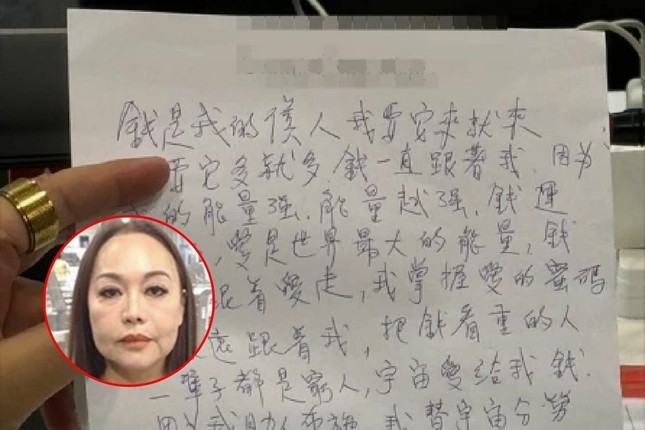 錢是我的僕人 我要它來就來
要它多就多,錢一直跟著我.因为
的能量强.能量越强.錢運
,愛是世界最大的能量,錢
跟着愛走,我掌握愛的密碼
跟着我,把錢看重的人
一輩子都是窮人,宇宙愛給我錢.
因为我助人布施 我替宇宙分勞